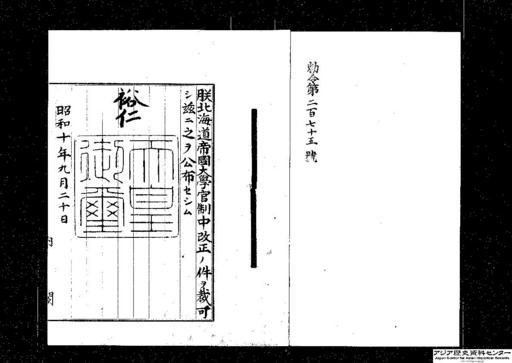 勅令第二百七十五號
朕北海道帝國大學官制中改正ノ件ヲ裁可
シ玆ニ之ヲ公布セシム
裕仁
天皇御璽
昭和十年九月二十日
内閣
アジア歴史資料センター
Japan Center for Asian Historical Records